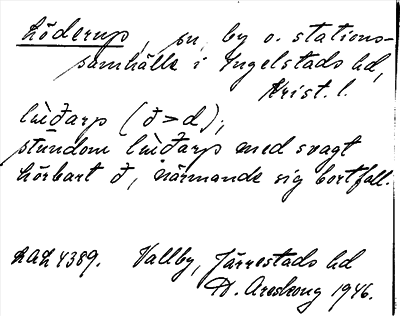 Löderup, sn, by o. stations-
samhälle i Ingelstads hd,
Krist. l.
lùðarp (ð>d);
stundom lùðarp med svagt
hörbart ð, närmande sig bortfall.
LAL 4389. Vallby, Järrestads hd
D. Areskoug 1946.